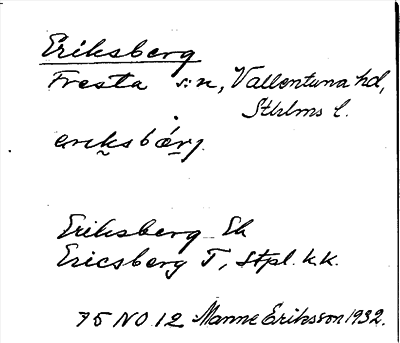 Eriksberg
Fresta s:n, Vallentuna hd,
Sthlms l.
eriksbærj.
Eriksberg Ek
Ericsberg T, Stpl. k.k.
75 NO 12 Manne Eriksson 1932.